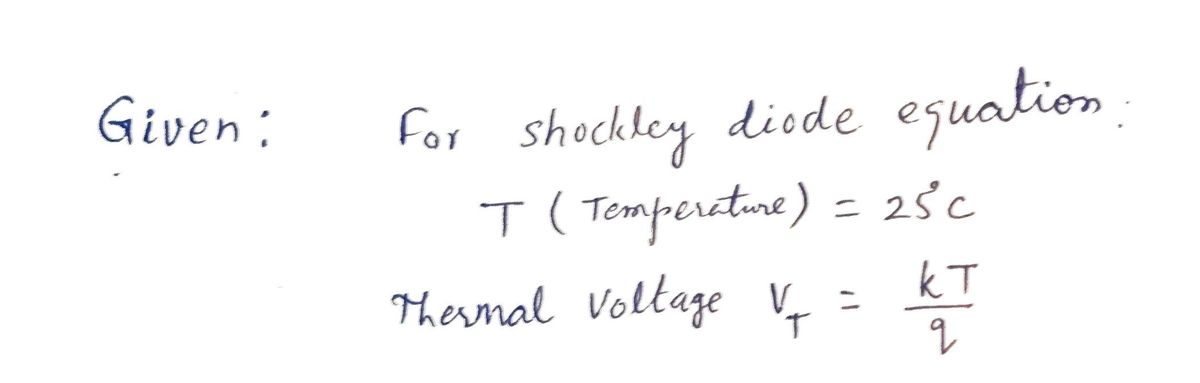 Given: For shockley diode equation:
T (Temperature) = 25°C
Thermal Voltage V_T = kT/q